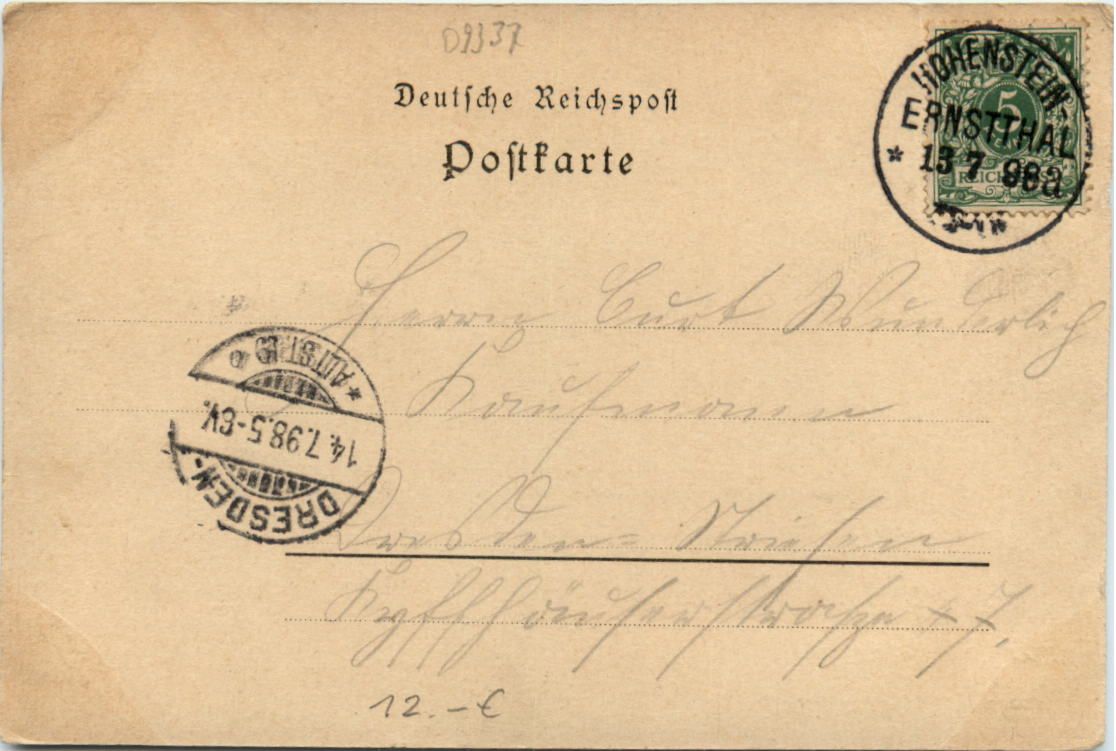 D9337
Deutsche Reichspost
Postkarte
HOHENSTEIN-
ERNSTTHAL
* 13 7 98 a
5
REICHSPOST
Herrn Curt Wunderlich
* ALTST. 19 b
Kaufmann
14.7.98.5-6V.
DRESDEN-
Dresden=Striesen
Kyffhäuserstrasse
12.-€